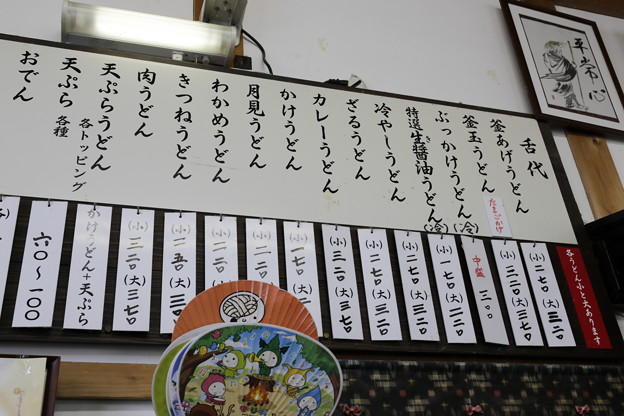 平常心
舌代
釜あげうどん
釜玉うどん
たまごかけ
ぶっかけうどん(冷)
特選生醤油うどん(冷)
冷やしうどん
ざるうどん
カレーうどん
かけうどん
月見うどん
わかめうどん
きつねうどん
肉うどん
天ぷらうどん
各トッピング
天ぷら 各種
おでん
各うどん小と大あります
(小)二七〇(大)三二〇
(小)三二〇(大)三七〇
中盛 三〇〇
(小)二七〇(大)三二〇
(小)二七〇(大)三二〇
(小)二七〇(大)三二〇
(小)三二〇(大)三七〇
(小)一七〇
(小)
(小)
(小) (大)
(小)三二〇(大)三七〇
かけうどん+天ぷら
六〇〜一〇〇